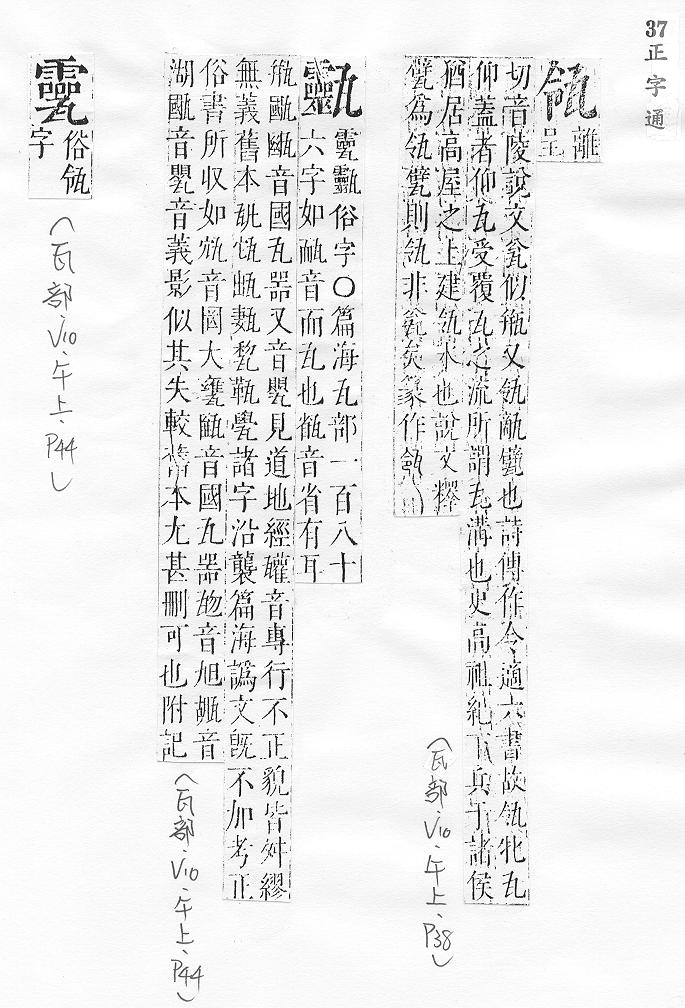 37
正字通
瓴 離呈
切音陵說文瓮似瓶又瓴甋甓也詩傳作令適六書故瓴牝瓦
仰蓋者仰瓦受覆瓦之流所謂瓦溝也史高祖紀下兵于諸侯
猶居高屋之上建瓴水也說文釋
甓為瓴甓則瓴非瓮矣篆作
(瓦部、V10、午上、P38)
俗字○篇海瓦部一百八十
六字如音而瓦也音省有耳
音國瓦器又音甖見道地經音專行不正貌皆舛繆
無義舊本諸字沿襲篇海譌文旣不加考正
俗書所収如音岡大甕音國瓦器音旭音
湖音甖音義影似其失較舊本尤甚刪可也附記
(瓦部、V10、午上、P44)
俗瓴字
(瓦部、V10、午上、P44)